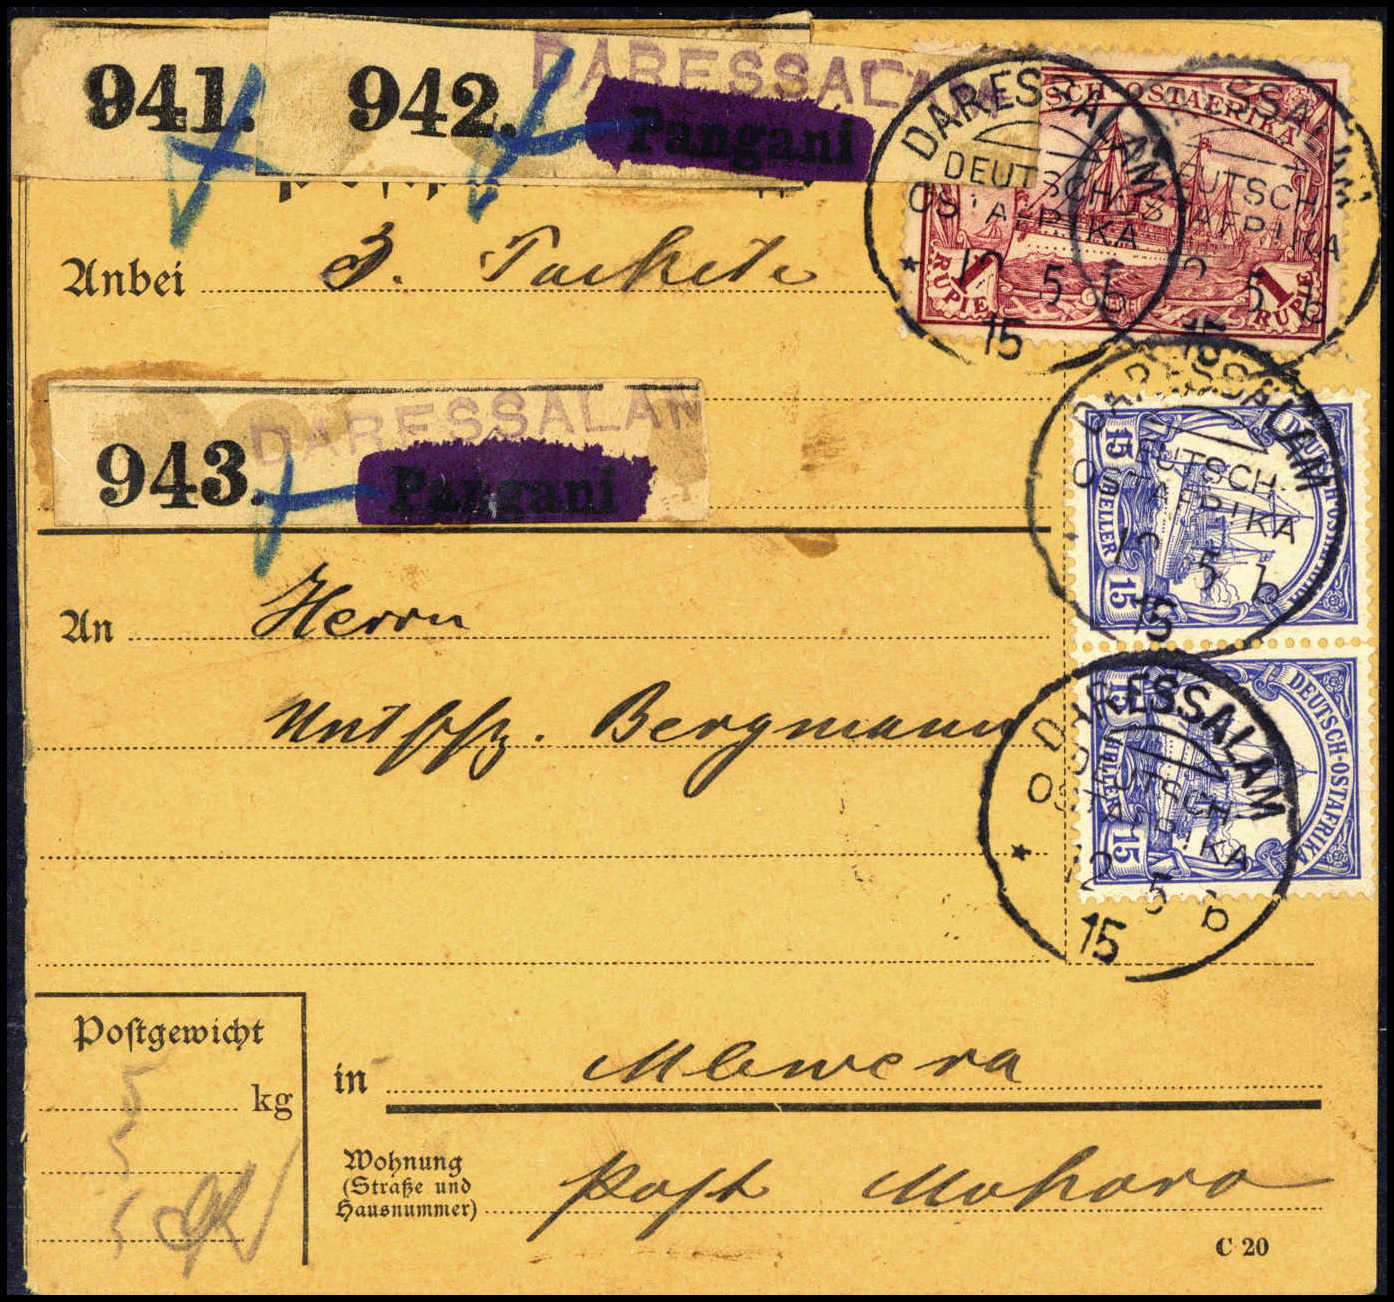 941.
942.
DARESSALAM
Pangani
Anbei 3. Packete
943.
DARESSALAM
Pangani
An Herrn
Untffz. Bergmann
Postgewicht
5 kg
5
5
in Mbwera
Wohnung
(Straße und
Hausnummer)
Post Mohoro
C 20
DEUTSCH-OSTAFRIKA
1 RUPIE
1 RUPIE
DARESSALAM
DEUTSCH-
OSTAFRIKA
* 12 5 b
15
DARESSALAM
DEUTSCH-
OSTAFRIKA
12 5 b
15
DEUTSCH-OSTAFRIKA
15 HELLER 15
DARESSALAM
DEUTSCH-
OSTAFRIKA
12 5 b
15
DEUTSCH-OSTAFRIKA
15 HELLER 15
DARESSALAM
DEUTSCH-
OSTAFRIKA
* 12 5 b
15